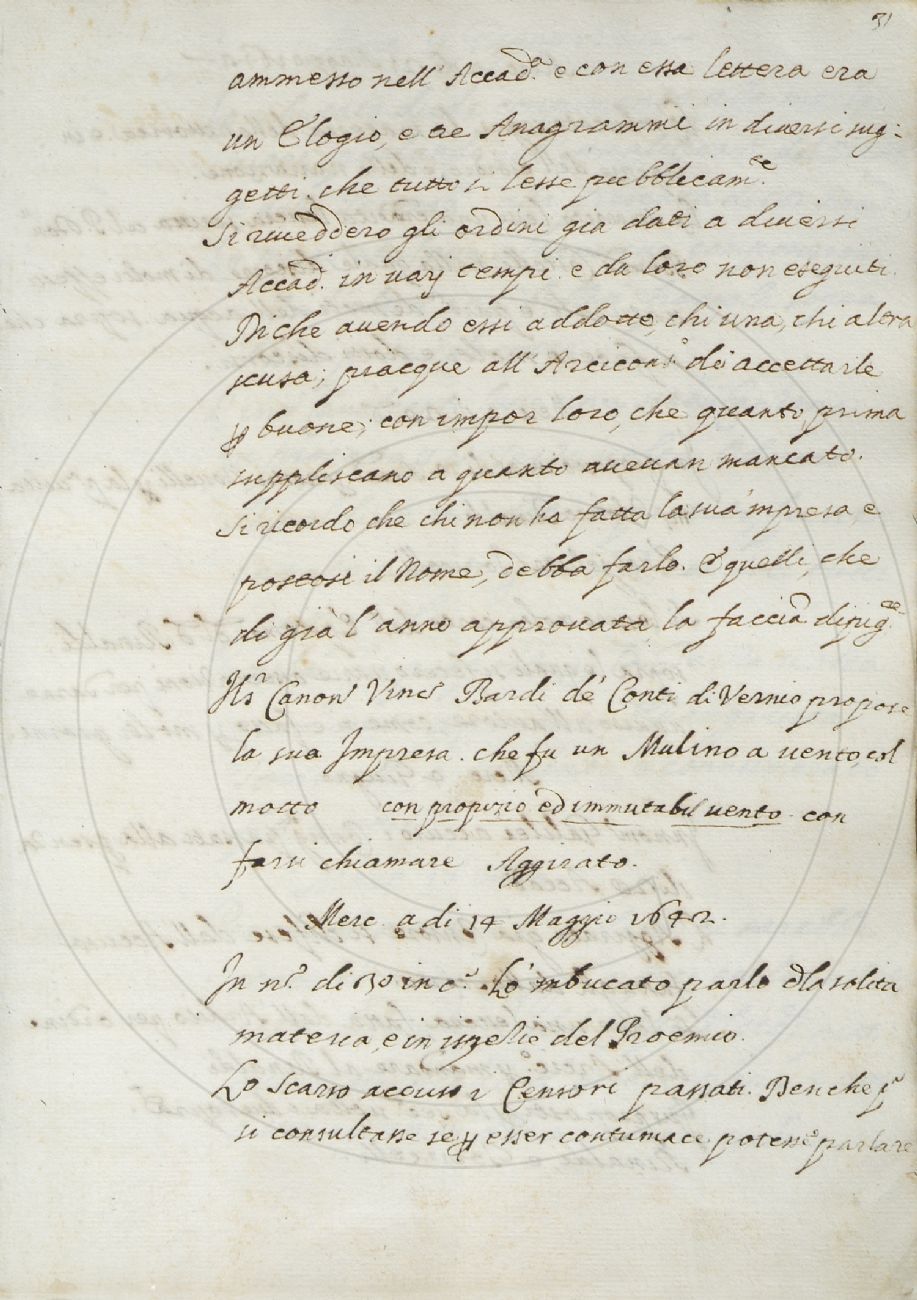 31
ammesso nell' Accad.ª e con essa lettera era
un Elogio, e tre Anagrammi in diversi sug-
getti, che tutto si lesse pubblicam.te
Si riveddero gli ordini gia dati a diversi
Accad. in varj tempi e da loro non eseguiti.
Di che avendo essi addotte, chi una, chi altra
scusa; piacque all' Arcicon.º di accettarle
ꝑ buone; con impor loro, che quanto prima
supplischano a quanto avevan mancato.
Si ricordò che chi non ha fatta la sua impresa e
postosi il Nome, debba farlo. E quelli, che
di già l' anno approvata la faccia dipig.re
Il Sr Canon.º Vinc.º Bardi de' Conti di Vernio propose
la sua Impresa. che fu un Mulino a vento, col
motto con propizio ed immutabil vento. con
farsi chiamare Aggirato.
Merc. a di 14 Maggio 1642.
In n.º di 30 in c.ª Lo 'mbucato parlò d la solita
materia, e in ispezie del Proemio.
Lo Scarso accusò i Censori passati. Benche p.ª
si consultasse se ꝑ esser contumace potesse parlare